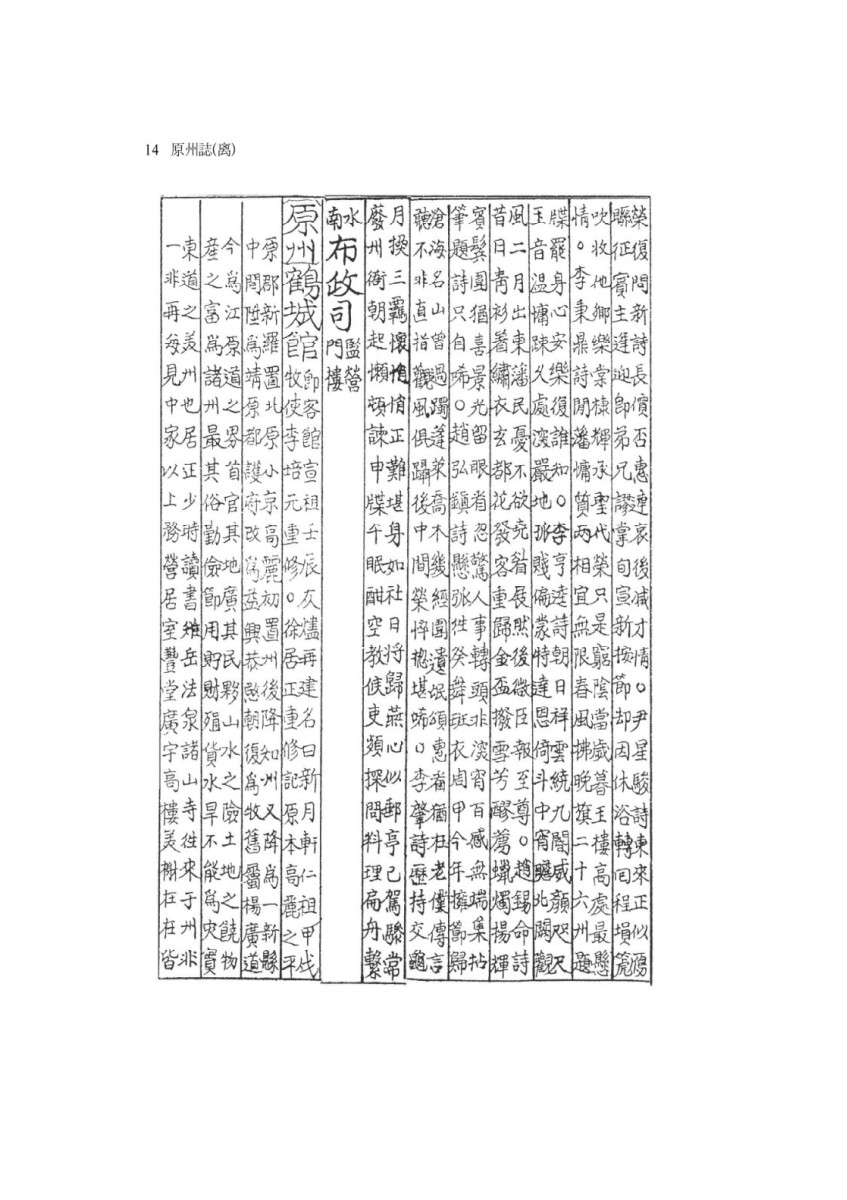 14 原州誌(离)
榮復問新詩長儐否惠連哀後減才情。尹星駿詩東來正似鴈
聯征賓主逢迎卽弟兄謬掌旬宣新按節却因休浴轉回程塤箎
吹收他鄉樂棠棣輝承聖代榮只是窮陰當歲暮主樓高處最懸
情。李秉鼎詩閒藩慵質兩相宜無限春風拂晩旗二十六州題
牒罷身心安樂復誰知。李亨逵詩朝日祥雲繞九閽威顔咫尺
玉音温慵踈久處深嚴地孱賤偏蒙特達恩倚斗中宵瞻北闕觀
風二月出東藩民憂不欲堯眷展然後微臣報至尊。趙錫命詩
昔日青衫着繡衣玄都花發客重歸金盃撥雪芳醪蒿蠟燭揚輝
賓鬂團猶喜景光留眼者忽驚人事轉頭非淡宵百感無端集拈
筆題詩只自唏。趙弘鎭詩懸弧往癸舞斑衣周甲今年擁節歸
滄海名山曾過躅蓬萊喬木幾經圍遺氓頌惠眷猶在老僕傳言
聽不非直指觀風俱躡後中間榮悴摠堪唏。李肇詩歷持交龜
月揆三羈懷悄悄正難堪身如社日將歸燕心似郵亭已駕驂常
廢州衙朝起懶頓諫申牒午眠酣空教候吏頻探問料理扁舟繫
水南布政司監營門樓
原州鶴城館卽客館宣祖壬辰灰燼再建名曰新月軒仁祖甲戌
牧使李培元重修。徐居正重修記原本高麗之平
原郡新羅置北原小京高麗初置州後降知州又降爲一新縣
中間陞爲靖原都護府改爲益興恭愍朝復爲牧舊屬楊廣道
今爲江原道之界首官其地廣其民夥山水之險土地之饒物
産之富爲諸州最其俗勤儉節用貯財殖貨水旱不能爲灾實
東道之美州也居正少時讀書雉岳法泉諸山寺徃來于州非
一非再每見中家以上務營居室豐堂廣宇高樓美榭在在皆